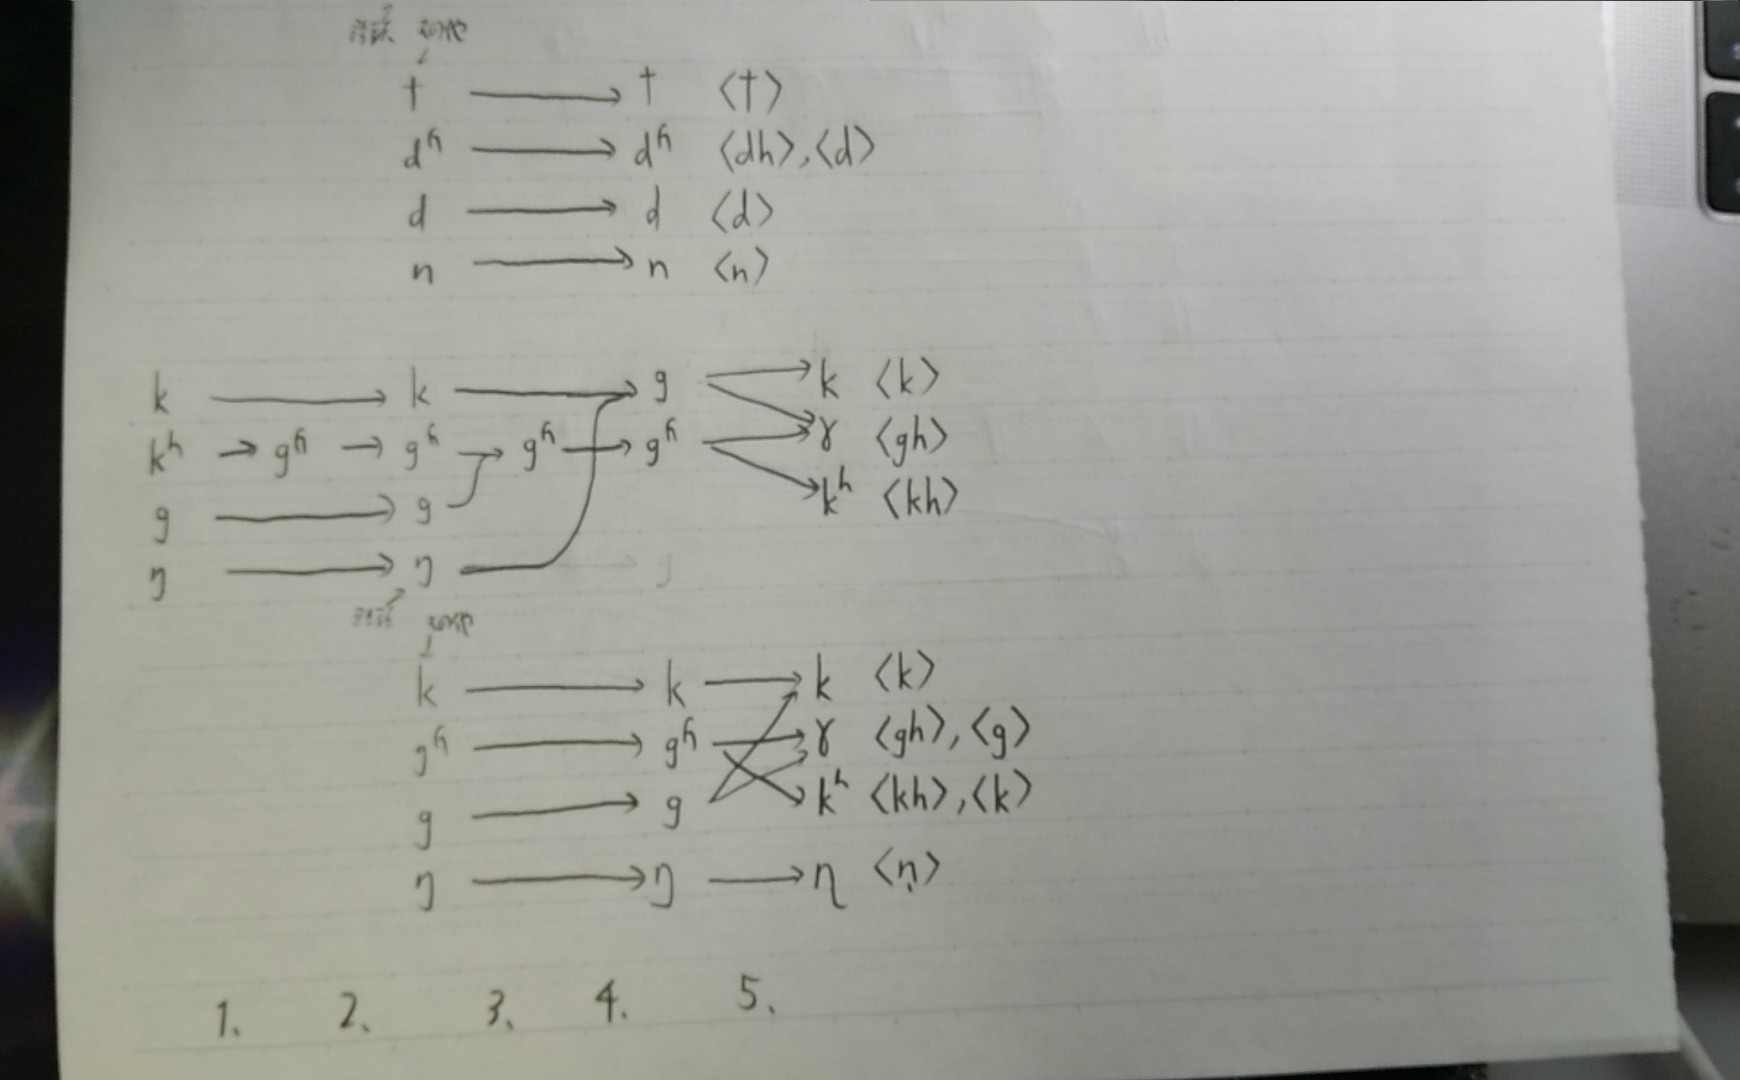 t → t ⟨t⟩
dʱ → dʱ ⟨dh⟩, ⟨d⟩
d → d ⟨d⟩
n → n ⟨n⟩
k → k → g → k ⟨k⟩
kʰ → gʱ → gʱ → gʱ → gʱ → ɤ ⟨gh⟩
g → g kʰ ⟨kh⟩
ŋ → ŋ
k → k → k ⟨k⟩
gʱ → gʱ → ɤ ⟨gh⟩, ⟨g⟩
g → g → kʰ ⟨kh⟩, ⟨k⟩
ŋ → ŋ → ŋ ⟨ṇ⟩
1. 2. 3. 4. 5.